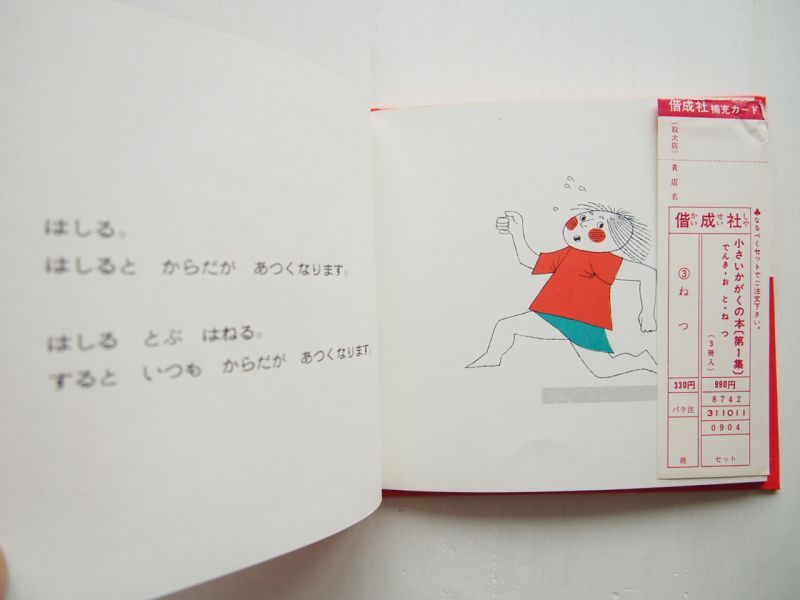 はしる。
はしると からだが あつくなります。
はしる とぶ はねる。
すると いつも からだが あつくなります。
偕成社 補充カード
(取次店)
貴店名
♣なるべくセットでご注文下さい。
偕成社
かいせいしや
小さいかがくの本〔第1集〕
でんき・おと・ねつ
(3冊入)
③ねつ
330円
990円
バラ注
8742
311011
0904
冊
セット